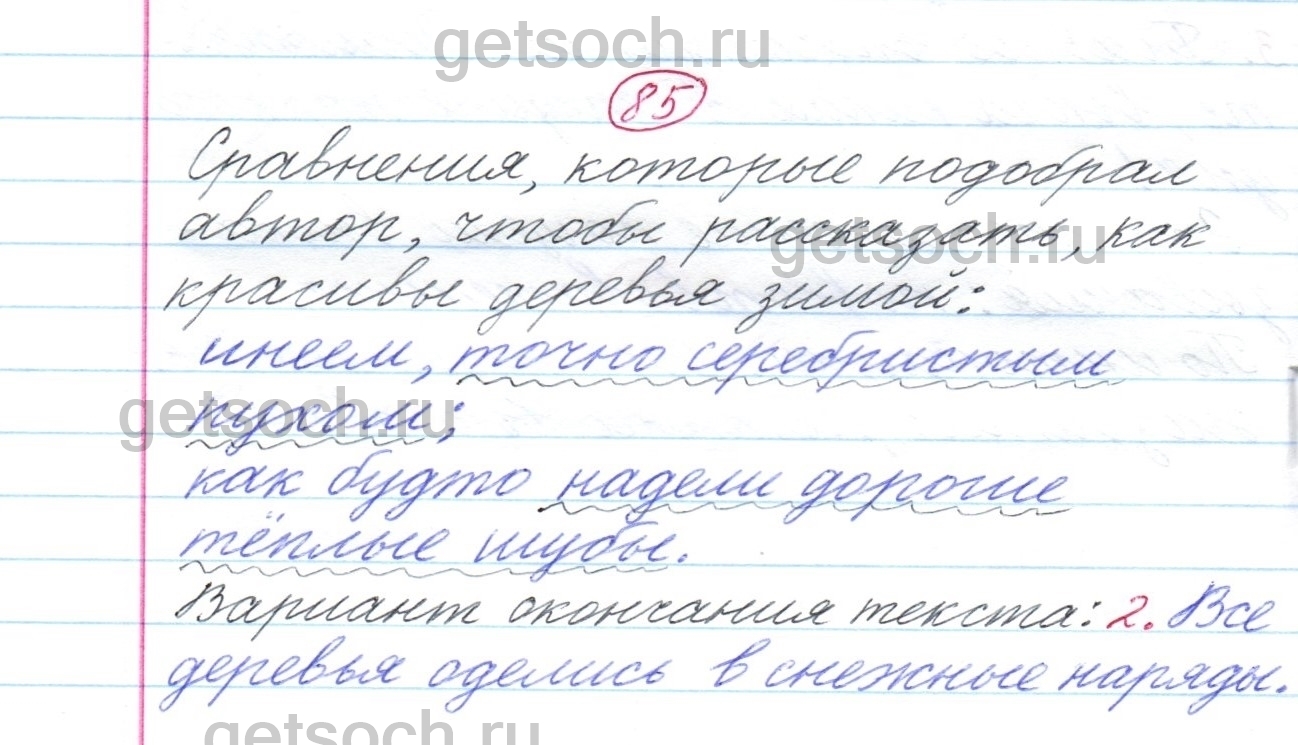 getsoch.ru
85
Сравнения, которые подобрал
автор, чтобы рассказать, как
getsoch.ru
красивы деревья зимой:
инеем, точно серебристым
getsoch.ru
пухом;
как будто надели дорогие
тёплые шубы.
Вариант окончания текста: 2. Все
деревья оделись в снежные наряды.
getsoch.ru